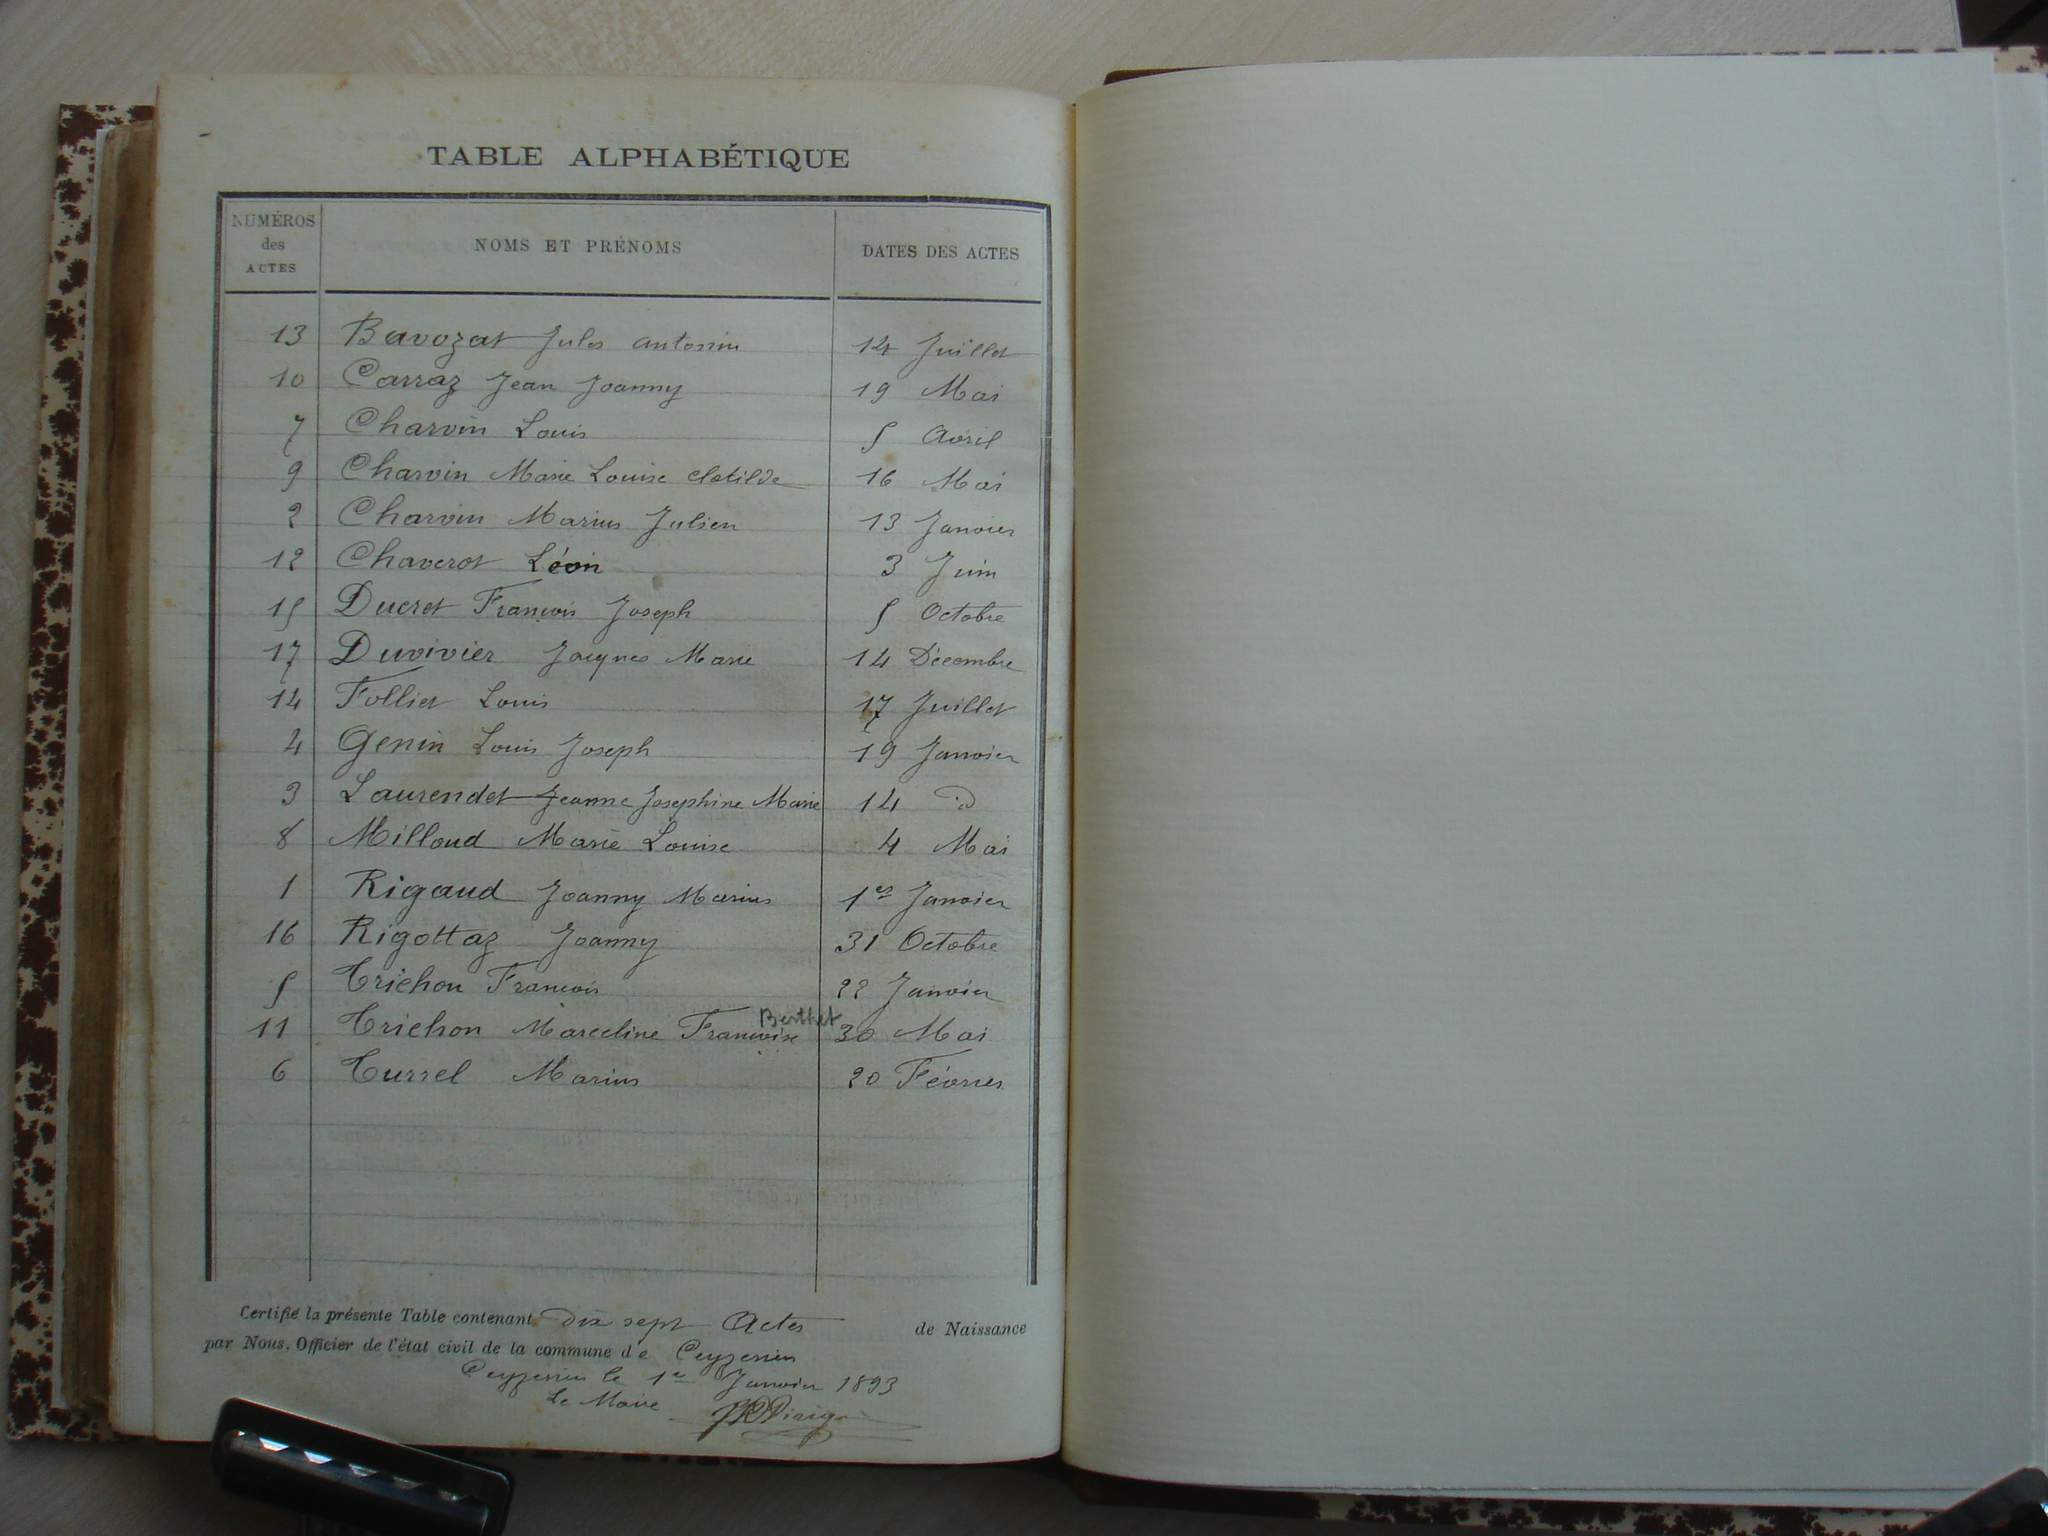 TABLE ALPHABÉTIQUE
NUMÉROS des ACTES NOMS ET PRÉNOMS DATES DES ACTES
13 Bavozat Jules Antonin 14 Juillet
10 Carraz Jean Joanny 19 Mai
7 Charvin Louis 5 Avril
9 Charvin Marie Louise Clotilde 16 Mai
2 Charvin Marius Julien 13 Janvier
12 Chaverot Léon 3 Juin
15 Ducret François Joseph 5 Octobre
17 Duvivier Jacques Marie 14 Décembre
14 Folliet Louis 17 Juillet
4 Genin Louis Joseph 19 Janvier
3 Laurendet Jeanne Josephine Marie 14 d
8 Milloud Marie Louise 4 Mai
1 Rigaud Joanny Marius 1er Janvier
16 Rigottaz Joanny 31 Octobre
5 Trichon François 22 Janvier
Berthet
11 Trichon Marceline Françoise 30 Mai
6 Turrel Marius 20 Février
Certifié la présente Table contenant dix sept Actes de Naissance
par Nous, Officier de l'état civil de la commune de Ceyzerieu
Ceyzerieu le 1er Janvier 1893
Le Maire